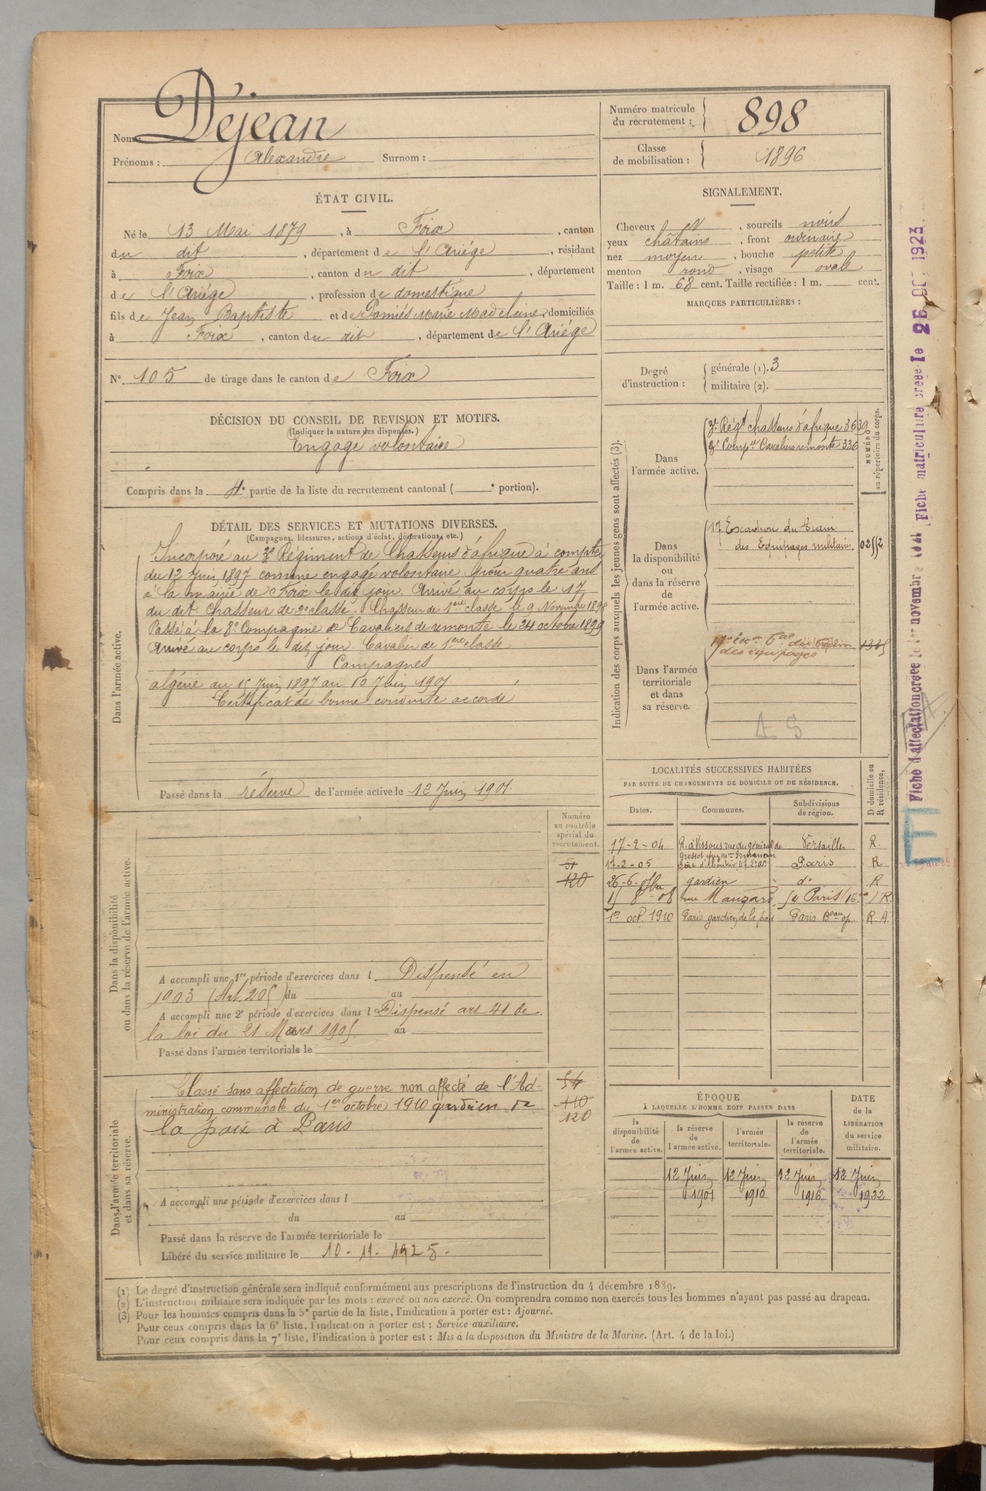 Nom : Déjean
Prénoms : Alexandre Surnom :
Numéro matricule du recrutement : 898
Classe de mobilisation : 1896
ÉTAT CIVIL.
Né le 13 Mai 1879, à Foix, canton
du dit, département de l'Ariége, résidant
à Foix, canton du dit, département
de l'Ariége, profession de domestique
fils de Jean Baptiste et de Pomiés Marie Madeleine, domiciliés
à Foix, canton du dit, département de l'Ariége
N° 105 de tirage dans le canton de Foix
SIGNALEMENT.
Cheveux et, sourcils noirs
yeux châtains, front ordinaire
nez moyen, bouche petite
menton rond, visage ovale
Taille : 1 m. 68 cent. Taille rectifiée : 1 m. cent.
MARQUES PARTICULIÈRES :
Degré d'instruction : générale (1). 3
militaire (2).
DÉCISION DU CONSEIL DE REVISION ET MOTIFS.
(Indiquer la nature des dispenses.)
Engagé volontaire
Compris dans la 4e partie de la liste du recrutement cantonal ( e portion).
DÉTAIL DES SERVICES ET MUTATIONS DIVERSES.
(Campagnes, blessures, actions d'éclat, décorations, etc.)
Dans l'armée active.
Incorporé au 3e Régiment de Chasseurs d'afrique à compter
du 12 Juin 1897 comme engagé volontaire pour quatre ans
à la mairie de Foix le dit jour. Arrivé au corps le 17
du dit. Chasseur de 2e classe. Chasseur de 1ere classe le 9 Novembre 1898
Passé à la 8e Compagnie de Cavaliers de remonte le 24 octobre 1899
Arrivé au corps le dit jour Cavalier de 1ere classe
Campagnes
algérie du 15 Juin 1897 au 10 Juin 1901
Certificat de bonne conduite accordé
Passé dans la réserve de l'armée active le 12 Juin 1901
Indication des corps auxquels les jeunes gens sont affectés (3).
NUMÉRO au répertoire du corps.
Dans l'armée active.
3e Régt chasseurs d'afrique 3639
8e Compie Cavaliers remonte 336
Dans la disponibilité ou dans la réserve de l'armée active.
17 Escadron du Train
des Equipages militaire
Dans l'armée territoriale et dans sa réserve.
des équipages
LOCALITÉS SUCCESSIVES HABITÉES
PAR SUITE DE CHANGEMENTS DE DOMICILE OU DE RÉSIDENCE.
Dates. Communes. Subdivisions de région. D domicile ou R résidence.
17-2-04 Versailles R
Paris R
gardien do R
1er oct 1910 Paris gardien de la paix Paris R A
Numéro au contrôle spécial du recrutement.
51
120
Dans la disponibilité ou dans la réserve de l'armée active.
A accompli une 1re période d'exercices dans l Dispensé en
1903 (Art. 205) du au
A accompli une 2e période d'exercices dans l Dispensé art 41 de
la loi du 21 Mars 1905 au
Passé dans l'armée territoriale le
Dans l'armée territoriale et dans sa réserve.
Classé sans affectation de guerre non affecté de l'Ad-
ministration communale du 1er octobre 1910 gardien de
la paix à Paris
54
110
120
A accompli une période d'exercices dans l
du au
Passé dans la réserve de l'armée territoriale le
Libéré du service militaire le 10-11-1925.
ÉPOQUE
À LAQUELLE L'HOMME DOIT PASSER DANS
la disponibilité de l'armée active. la réserve de l'armée active. l'armée territoriale. la réserve de l'armée territoriale.
DATE de la LIBÉRATION du service militaire.
12 Juin 1901 12 Juin 1910 12 Juin 1916 12 Juin 1922
(1) Le degré d'instruction générale sera indiqué conformément aux prescriptions de l'instruction du 4 décembre 1889.
(2) L'instruction militaire sera indiquée par les mots : exercé ou non exercé. On comprendra comme non exercés tous les hommes n'ayant pas passé au drapeau.
(3) Pour les hommes compris dans la 5e partie de la liste, l'indication à porter est : Ajourné.
Pour ceux compris dans la 6e liste, l'indication à porter est : Service auxiliaire.
Pour ceux compris dans la 7e liste, l'indication à porter est : Mis à la disposition du Ministre de la Marine. (Art. 4 de la loi.)